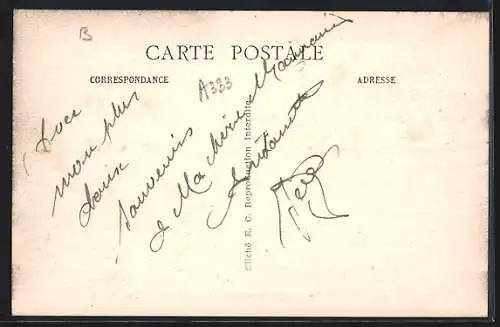 B
CARTE POSTALE
CORRESPONDANCE
ADRESSE
A333
Avec
mon plus
doux
souvenirs
a Ma chère Marraine
Antoinette
Cliché E. C. Reproduction Interdite.